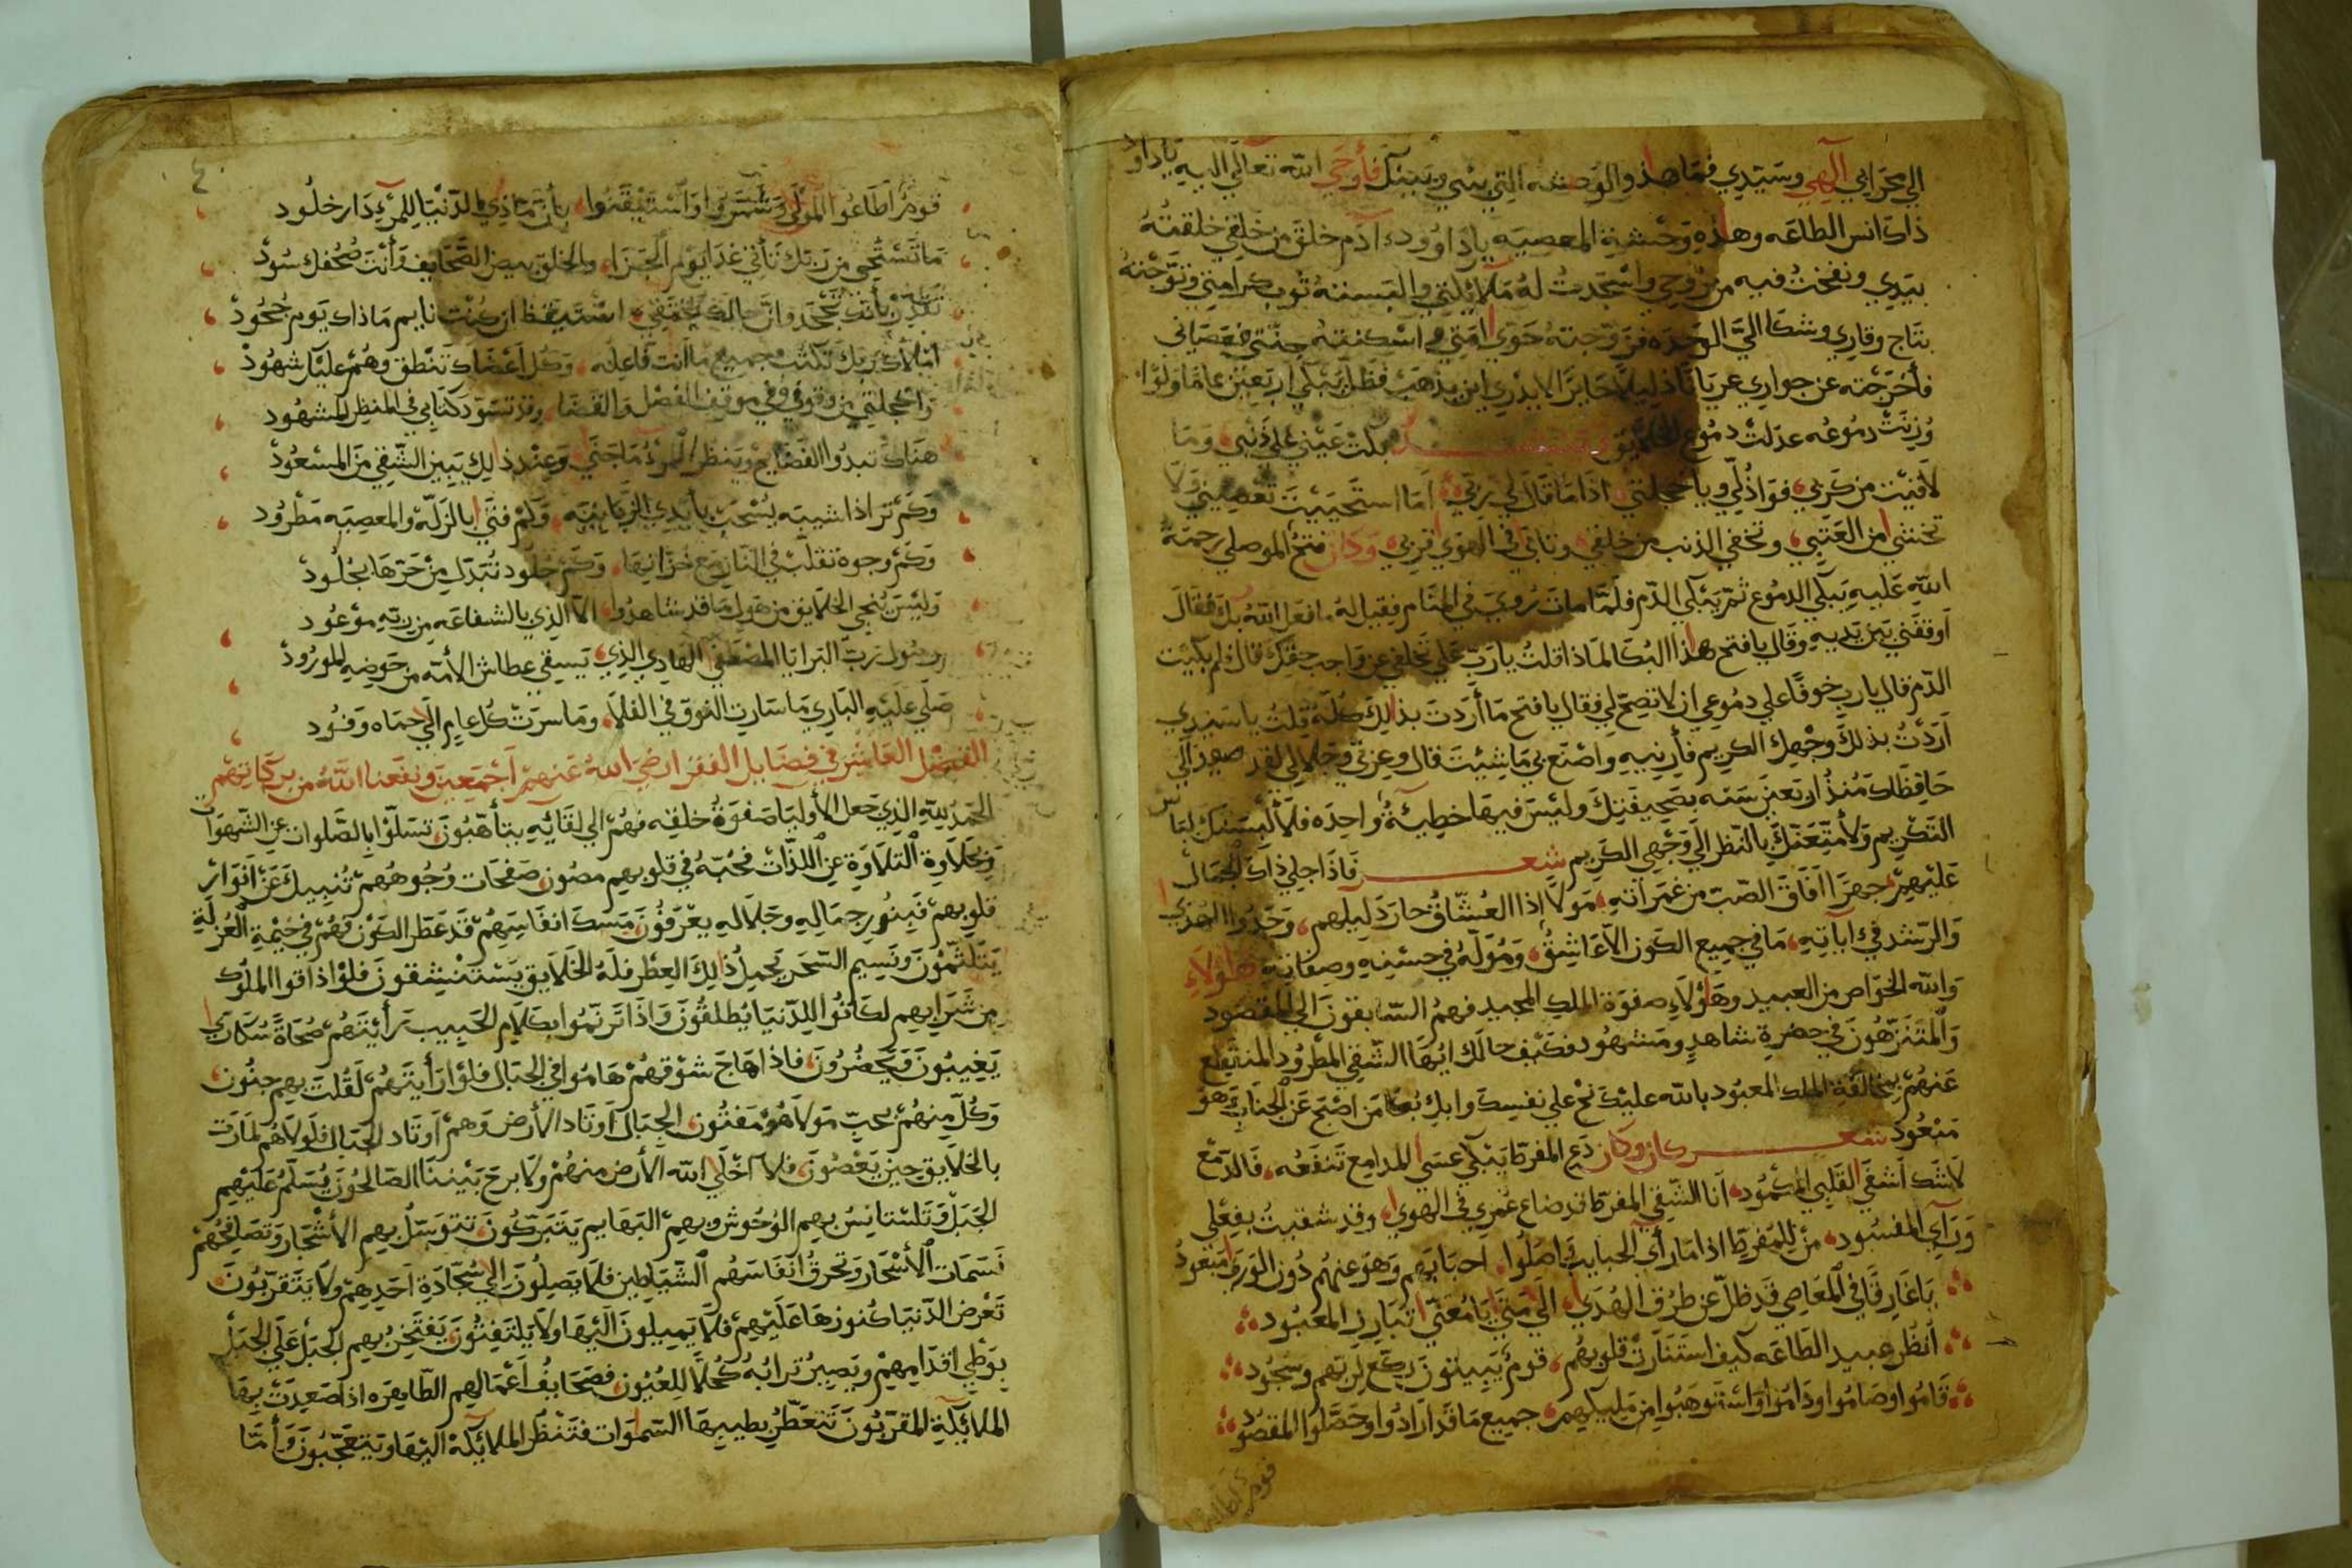 الي محرابي الهي وسيدي فما هذه الوحشه التي بيني وبينك فأوحي الله تعالي اليه يا داود
ذاك انس الطاعه وهذه وحشة المعصيه يا داوود ادم خلق من خلقي خلقته
بيدي ونفخت فيه من روحي واسجدت له ملائكتي والبسته ثوب كرامتي وتوجته
بتاج وقاري وشكا الي الوحده فزوجته حوي امتي واسكنته جنتي فعصاني
فأخرجته عن جواري عريانا ذليلا حايرا لا يدري اين يذهب فظل يبكي اربعين عاما ولو
وزنت دموعه عدلت دموع الخلايق شعر بكت عيني علي ذنبي وما
لاقيت من كربي فواذلي ويا خجلتي اذا ما قال لي ربي أما استحييت تعصيني ولا
تخشي من العتبي وتخفي الذنب من خلقي وتابي في الهوي قربي وكان فتح الموصلي رحمة
الله عليه يبكي الدموع ثم يبكي الدم فلما مات رؤي في المنام فقيل له ما فعل الله بك فقال
اوقفني بين يديه وقال يا فتح هذا البكا لماذا قلت يا رب علي تخلفي عن واجب حقك قال فلم بكيت
الدم قال يا رب خوفا علي دموعي ان لا تصح لي فقال يا فتح ما أردت بذلك كله قلت يا سيدي
أردت بذلك وجهك الكريم فأرنيه واصنع بي ما شيت قال وعزتي وجلالي لقد صعد الي
حافظاك منذ اربعين سنه بصحيفتك وليس فيها خطية واحده فلألبسنك لباس
التكريم ولأمتعنك بالنظر الي وجهي الكريم شعر فاذا جلي ذاك الجمال
عليهم جهرا افاق الصب من غمراته مولا اذا العشاق حار دليلهم وجدوا الهدي
والرشد في آياته ما في جميع الكون الا عاشق ومولّه في حسنه وصفاته هؤلاء
والله الخواص من العبيد وهؤلاء صفوة الملك المجيد فهم السابقون الي المقصود
والمتنزهون في حضرة شاهد ومشهود فكيف حالك ايها الشقي المطرود المنقطع
عنهم بمخالفة الملك المعبود بالله عليك نح علي نفسك وابك بعا من اصبح عن الجناب وهو
مبعود شعر كان وكان دع المفرط يبكي عسي المدامع تنفعه فالدمع
لا شك أشفي القلبي المكمود انا الشقي المفرط قد ضاع عمري في الهوي وقد شقيت بفعلي
ورأي المفسود من للمفرط اذا ما رأي الحبايب واصلوا احبابهم وهو عنهم دون الوري مبعود
يا غارقا في المعاصي قد ظل عن طرق الهدي الي متي يا معنّي تبارز المعبود
أنظر عبيد الطاعه كيف استنارت قلوبهم قوم يبيتون ركع لربهم وسجود
قاموا وصاموا وداموا واستوهبوا من مليكهم جميع ما قد ارادوا وحصلوا المقصود
قوم اطاعوا
٤
قوم أطاعوا المولي وشمروا واستيقنوا بأن ما ذي الدنيا للمرء دار خلود
ما تستحي من ربك تأتي غدا يوم الجزاء والخلق بيض الصحايف وأنت صحفك سود
تقدر بأنك تجحد وان حالك يختفي استيقظ ان كنت نايم ما ذاك يوم جحود
أملاك ربك تكتب جميع ما انت فاعله وكل اعضاك تنطق وهم عليك شهود
واخجلتي من وقوفي في موقف الفصل والقضا وقد تسود كتابي في المنظر المشهود
هناك تبدوا الفضايح وينظر المرء ما جني وعند ذلك يبين الشقي من المسعود
وكم ترا ذا شيبه يسحب بأيدي الزبانيه وكم فتي بالزله والمعصيه مطرود
وكم وجوه تقلب في النار مع خزانها وكم جلود تبدل من حرها بجلود
وليس ينجي الخلايق من هول ما قد شاهدوا الا الذي بالشفاعه من ربه موعود
رسول رب البرايا المصطفي الهادي الذي يسقي عطاش الامه من حوضه المورود
صلي عليه الباري ما سارت النوق في الفلا وما سرت كل عام الي حماه وفود
الفصل العاشر في فضايل الفقرا رضي الله عنهم اجمعين ونفعنا الله من بركاتهم
الحمد لله الذي جعل الأوليا صفوة خلقه فهم الي لقائه يتأهبون تسلوا بالصلوات عن الشهوات
وبحلاوة التلاوة عن اللذات فحبه في قلوبهم مصون صفحات وجوههم تنبيك عن انوار
قلوبهم فبنور جماله وجلاله يعرفون مسك انفاسهم قد عطر الكون فهم في خيمة العزلة
يتلثمون ونسيم السحر يحمل ذلك العطر فله الخلايق يستنشقون فلو اذاقوا الملوك
من شرابهم لكانوا للدنيا يطلقون واذا ترنموا بكلام الحبيب رأيتهم صحاة سكاري
يغيبون ويحضرون فاذا هاج شوقهم هاموا في الجبال فلو رأيتهم لقلت بهم جنون
وكل منهم بحب مولاهو مفتون الجبال اوتاد الارض وهم اوتاد الجبال فلولاهم لمارت
بالخلايق حين يعصون فلا اخلي الله الأرض منهم ولا برح بيننا الصالحون يسلم عليهم
الجبل وتستانس بهم الوحوش وبهم البهايم يتبركون تتوسل بهم الأشجار وتصافحهم
نسمات الأسحار وتحرق انفاسهم الشياطين فلا يصلون الي سجادة احدهم ولا يتقربون
تعرض الدنيا كنوزها عليهم فلا يميلون اليها ولا يلتفتون يفتخر بهم الجبل علي الجبل
بوطي اقدامهم ويصير ترابه كحلا للعيون فصحايف أعمالهم الطاهره اذا صعدت بها
الملائكة المقربون تتعطر بطيبها السموات فتنظر الملائكة اليها ويتعجبون وأما